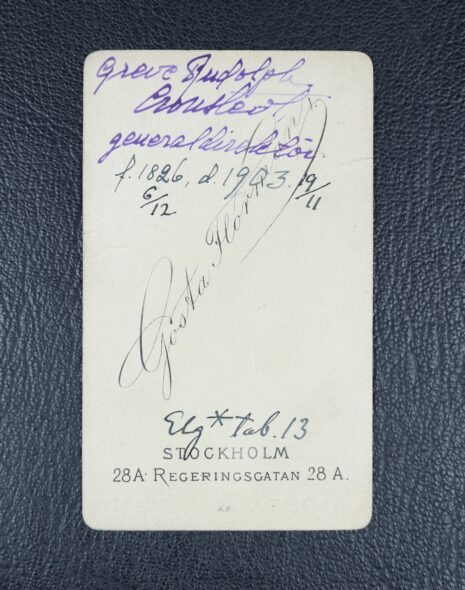 Greve Rudolph
Cronstedt
generaldirektör
f. 1826, d. 1903. 19/11
6/12
Gösta Florman
Elg * tab. 13
STOCKHOLM
28A. REGERINGSGATAN 28 A.
N.P.